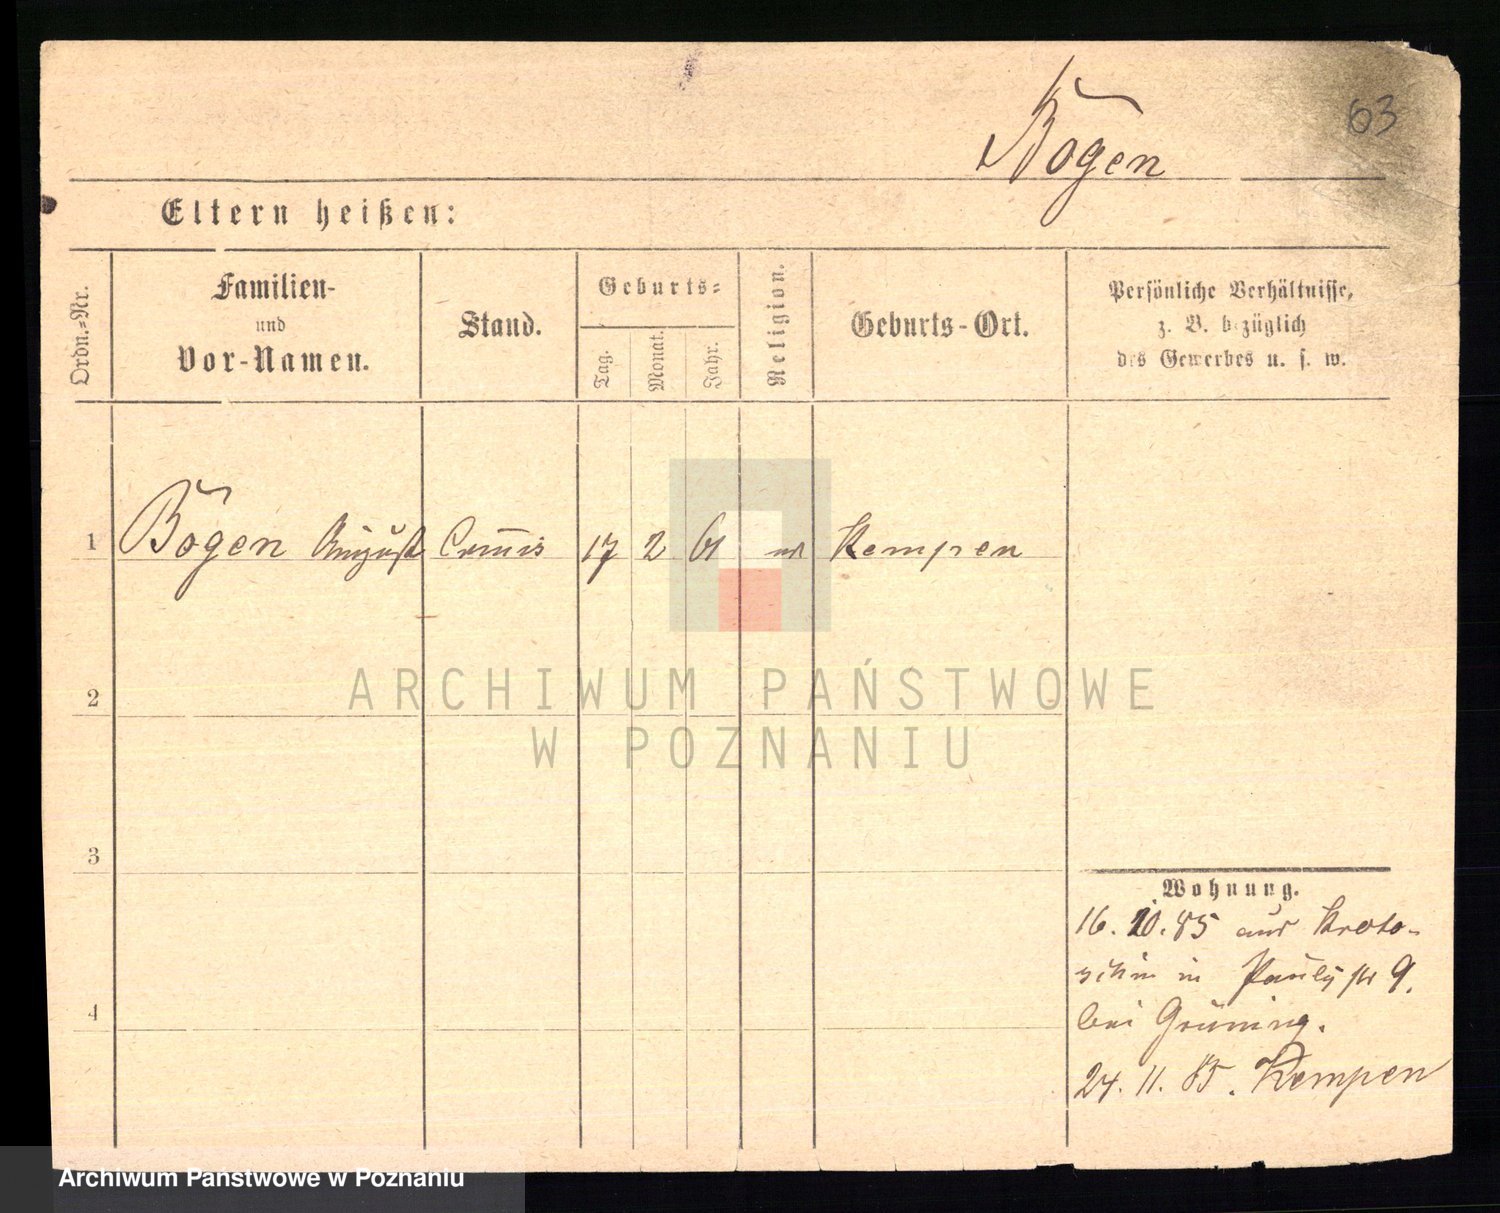 63
Bogen
Eltern heißen:
Ordn.=Nr.
Familien-
und
Vor-Namen.
Stand.
Geburts=
Tag.
Monat.
Jahr.
Religion.
Geburts-Ort.
Persönliche Verhältnisse,
z. B. bezüglich
des Gewerbes u. s. w.
1 Bogen August Commis 17 2 61 Kempen
2
3
4
Wohnung.
16. 10. 85 aus Kroto-
schin in Paulistr 9.
bei Grüning.
24. 11. 85. Kempen
ARCHIWUM PAŃSTWOWE
W POZNANIU
Archiwum Państwowe w Poznaniu